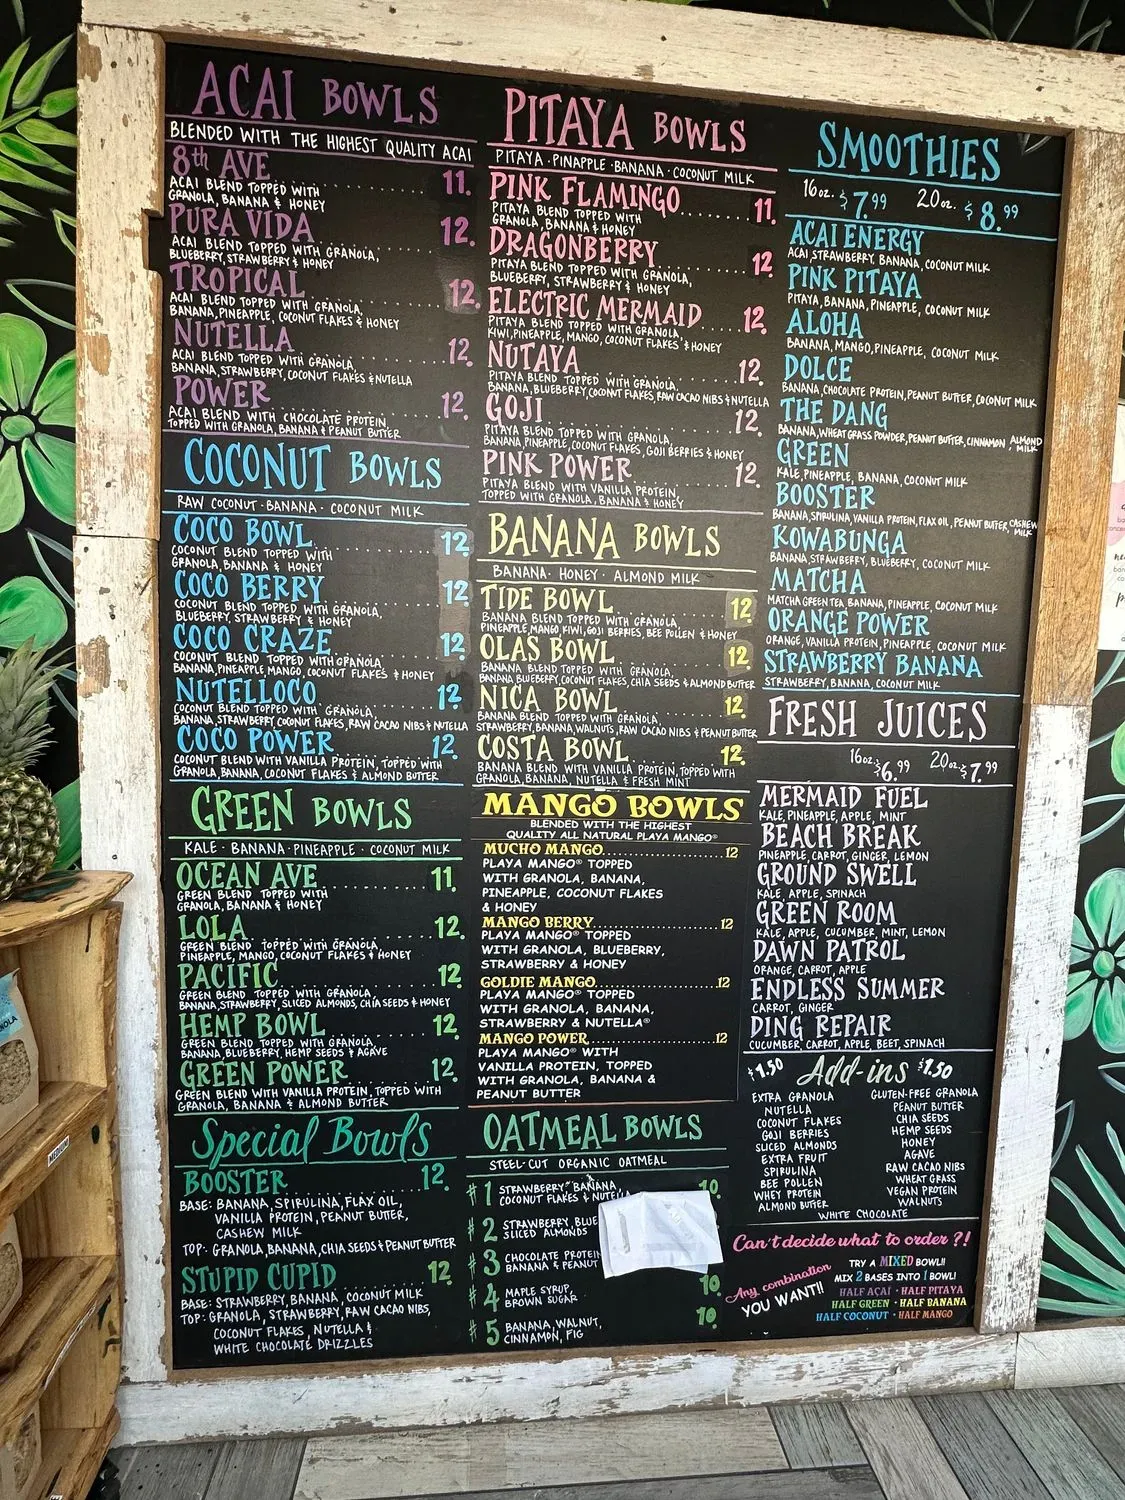 ACAI BOWLS
BLENDED WITH THE HIGHEST QUALITY ACAI
8th AVE ........ 11.
ACAI BLEND TOPPED WITH
GRANOLA, BANANA & HONEY
PURA VIDA ........ 12.
ACAI BLEND TOPPED WITH GRANOLA,
BLUEBERRY, STRAWBERRY & HONEY
TROPICAL ........ 12.
ACAI BLEND TOPPED WITH GRANOLA,
BANANA, PINEAPPLE, COCONUT FLAKES & HONEY
NUTELLA ........ 12.
ACAI BLEND TOPPED WITH GRANOLA,
BANANA, STRAWBERRY, COCONUT FLAKES & NUTELLA
POWER ........ 12.
ACAI BLEND WITH CHOCOLATE PROTEIN,
TOPPED WITH GRANOLA, BANANA & PEANUT BUTTER
COCONUT BOWLS
RAW COCONUT · BANANA · COCONUT MILK
COCO BOWL ........ 12.
COCONUT BLEND TOPPED WITH
GRANOLA, BANANA & HONEY
COCO BERRY ........ 12.
COCONUT BLEND TOPPED WITH GRANOLA,
BLUEBERRY, STRAWBERRY & HONEY
COCO CRAZE ........ 12.
COCONUT BLEND TOPPED WITH GRANOLA,
BANANA, PINEAPPLE, MANGO, COCONUT FLAKES & HONEY
NUTELLOCO ........ 12.
COCONUT BLEND TOPPED WITH GRANOLA,
BANANA, STRAWBERRY, COCONUT FLAKES, RAW CACAO NIBS & NUTELLA
COCO POWER ........ 12.
COCONUT BLEND WITH VANILLA PROTEIN, TOPPED WITH
GRANOLA, BANANA, COCONUT FLAKES & ALMOND BUTTER
GREEN BOWLS
KALE · BANANA · PINEAPPLE · COCONUT MILK
OCEAN AVE ........ 11.
GREEN BLEND TOPPED WITH
GRANOLA, BANANA & HONEY
LOLA ........ 12.
GREEN BLEND TOPPED WITH GRANOLA,
PINEAPPLE, MANGO, COCONUT FLAKES & HONEY
PACIFIC ........ 12.
GREEN BLEND TOPPED WITH GRANOLA,
BANANA, STRAWBERRY, SLICED ALMONDS, CHIA SEEDS & HONEY
HEMP BOWL ........ 12.
GREEN BLEND TOPPED WITH GRANOLA,
BANANA, BLUEBERRY, HEMP SEEDS & AGAVE
GREEN POWER ........ 12.
GREEN BLEND WITH VANILLA PROTEIN, TOPPED WITH
GRANOLA, BANANA & ALMOND BUTTER
Special Bowls
BOOSTER ........ 12.
BASE: BANANA, SPIRULINA, FLAX OIL,
VANILLA PROTEIN, PEANUT BUTTER,
CASHEW MILK
TOP: GRANOLA, BANANA, CHIA SEEDS & PEANUT BUTTER
STUPID CUPID ........ 12.
BASE: STRAWBERRY, BANANA, COCONUT MILK
TOP: GRANOLA, STRAWBERRY, RAW CACAO NIBS,
COCONUT FLAKES, NUTELLA &
WHITE CHOCOLATE DRIZZLES
PITAYA BOWLS
PITAYA · PINAPPLE · BANANA · COCONUT MILK
PINK FLAMINGO ........ 11.
PITAYA BLEND TOPPED WITH
GRANOLA, BANANA & HONEY
DRAGONBERRY ........ 12
PITAYA BLEND TOPPED WITH GRANOLA,
BLUEBERRY, STRAWBERRY & HONEY
ELECTRIC MERMAID ...... 12.
PITAYA BLEND TOPPED WITH GRANOLA,
KIWI, PINEAPPLE, MANGO, COCONUT FLAKES & HONEY
NUTAYA ........ 12.
PITAYA BLEND TOPPED WITH GRANOLA,
BANANA, BLUEBERRY, COCONUT FLAKES, RAW CACAO NIBS & NUTELLA
GOJI ........ 12.
PITAYA BLEND TOPPED WITH GRANOLA,
BANANA, PINEAPPLE, COCONUT FLAKES, GOJI BERRIES & HONEY
PINK POWER ........ 12.
PITAYA BLEND WITH VANILLA PROTEIN,
TOPPED WITH GRANOLA, BANANA & HONEY
BANANA BOWLS
BANANA · HONEY · ALMOND MILK
TIDE BOWL ........ 12.
BANANA BLEND TOPPED WITH GRANOLA,
PINEAPPLE, MANGO, KIWI, GOJI BERRIES, BEE POLLEN & HONEY
OLAS BOWL ........ 12.
BANANA BLEND TOPPED WITH GRANOLA,
BANANA, BLUEBERRY, COCONUT FLAKES, CHIA SEEDS & ALMOND BUTTER
NICA BOWL ........ 12.
BANANA BLEND TOPPED WITH GRANOLA,
STRAWBERRY, BANANA, WALNUTS, RAW CACAO NIBS & PEANUT BUTTER
COSTA BOWL ........ 12.
BANANA BLEND WITH VANILLA PROTEIN, TOPPED WITH
GRANOLA, BANANA, NUTELLA & FRESH MINT
MANGO BOWLS
BLENDED WITH THE HIGHEST
QUALITY ALL NATURAL PLAYA MANGO®
MUCHO MANGO ........ 12
PLAYA MANGO® TOPPED
WITH GRANOLA, BANANA,
PINEAPPLE, COCONUT FLAKES
& HONEY
MANGO BERRY ........ 12
PLAYA MANGO® TOPPED
WITH GRANOLA, BLUEBERRY,
STRAWBERRY & HONEY
GOLDIE MANGO ........ 12
PLAYA MANGO® TOPPED
WITH GRANOLA, BANANA,
STRAWBERRY & NUTELLA®
MANGO POWER ........ 12
PLAYA MANGO® WITH
VANILLA PROTEIN, TOPPED
WITH GRANOLA, BANANA &
PEANUT BUTTER
OATMEAL BOWLS
STEEL-CUT ORGANIC OATMEAL
#1 STRAWBERRY, BANANA, 10.
COCONUT FLAKES &
#2 STRAWBERRY,
SLICED ALMONDS
#3 CHOCOLATE PROTEIN
BANANA &
#4 MAPLE SYRUP, 10
BROWN SUGAR
#5 BANANA, WALNUT, 10
CINNAMON, FIG
SMOOTHIES
16 oz. $7.99 20 oz. $8.99
ACAI ENERGY
ACAI, STRAWBERRY, BANANA, COCONUT MILK
PINK PITAYA
PITAYA, BANANA, PINEAPPLE, COCONUT MILK
ALOHA
BANANA, MANGO, PINEAPPLE, COCONUT MILK
DOLCE
BANANA, CHOCOLATE PROTEIN, PEANUT BUTTER, COCONUT MILK
THE DANG
BANANA, WHEAT GRASS POWDER, PEANUT BUTTER, CINNAMON ALMOND
MILK
GREEN
KALE, PINEAPPLE, BANANA, COCONUT MILK
BOOSTER
BANANA, SPIRULINA, VANILLA PROTEIN, FLAX OIL, PEANUT BUTTER, CASHEW
MILK
KOWABUNGA
BANANA, STRAWBERRY, BLUEBERRY, COCONUT MILK
MATCHA
MATCHA GREEN TEA, BANANA, PINEAPPLE, COCONUT MILK
ORANGE POWER
ORANGE, VANILLA PROTEIN, PINEAPPLE, COCONUT MILK
STRAWBERRY BANANA
STRAWBERRY, BANANA, COCONUT MILK
FRESH JUICES
16oz. $6.99 20oz. $7.99
MERMAID FUEL
KALE, PINEAPPLE, APPLE, MINT
BEACH BREAK
PINEAPPLE, CARROT, GINGER, LEMON
GROUND SWELL
KALE, APPLE, SPINACH
GREEN ROOM
KALE, APPLE, CUCUMBER, MINT, LEMON
DAWN PATROL
ORANGE, CARROT, APPLE
ENDLESS SUMMER
CARROT, GINGER
DING REPAIR
CUCUMBER, CARROT, APPLE, BEET, SPINACH
$1.50 Add-ins $1.50
EXTRA GRANOLA
NUTELLA
COCONUT FLAKES
GOJI BERRIES
SLICED ALMONDS
EXTRA FRUIT
SPIRULINA
BEE POLLEN
WHEY PROTEIN
ALMOND BUTTER
GLUTEN-FREE GRANOLA
PEANUT BUTTER
CHIA SEEDS
HEMP SEEDS
HONEY
AGAVE
RAW CACAO NIBS
WHEAT GRASS
VEGAN PROTEIN
WALNUTS
WHITE CHOCOLATE
Can't decide what to order?!
Any combination
YOU WANT!!
TRY A MIXED BOWL!!
MIX 2 BASES INTO 1 BOWL!
HALF AÇAI · HALF PITAYA
HALF GREEN · HALF BANANA
HALF COCONUT · HALF MANGO